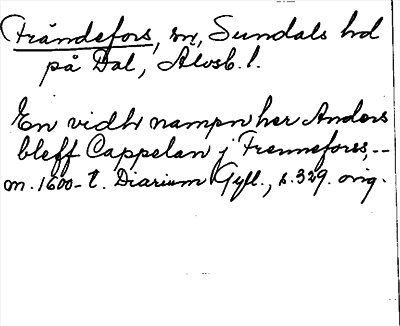 Frändefors, sn, Sundals hd
på Dal, Älvsb. l.
En vidh nampn her Anders
bleff Cappelan j Frenneforss,--
m. 1600-t. Diarium Gyll., s. 329. orig.